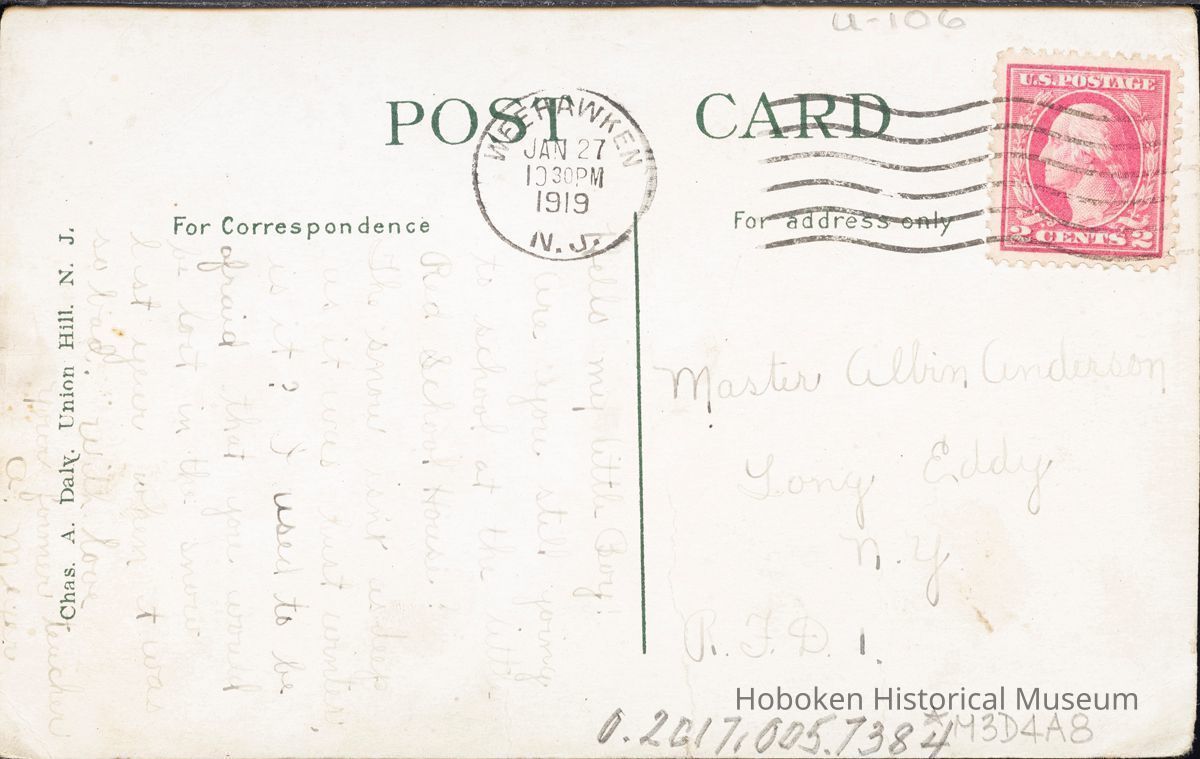 U-106
POST CARD
WEEHAWKEN
JAN 27
10 30PM
1919
N.J.
U.S. POSTAGE
2 CENTS 2
For Correspondence
For address only
Chas. A. Daly, Union Hill. N. J.
Hells my little Boy!
Are you still going
to school at the little
Red School House
the snow isnt as deep
as it was last winter
is it? I used to be
afraid that you would
be lost in the snow
last year when it was
so bad. With love
your former teacher
Master Albin Anderson
Long Eddy
N.Y
R.F.D. 1.
Hoboken Historical Museum
0.2017.005.7384
*M3D4A8